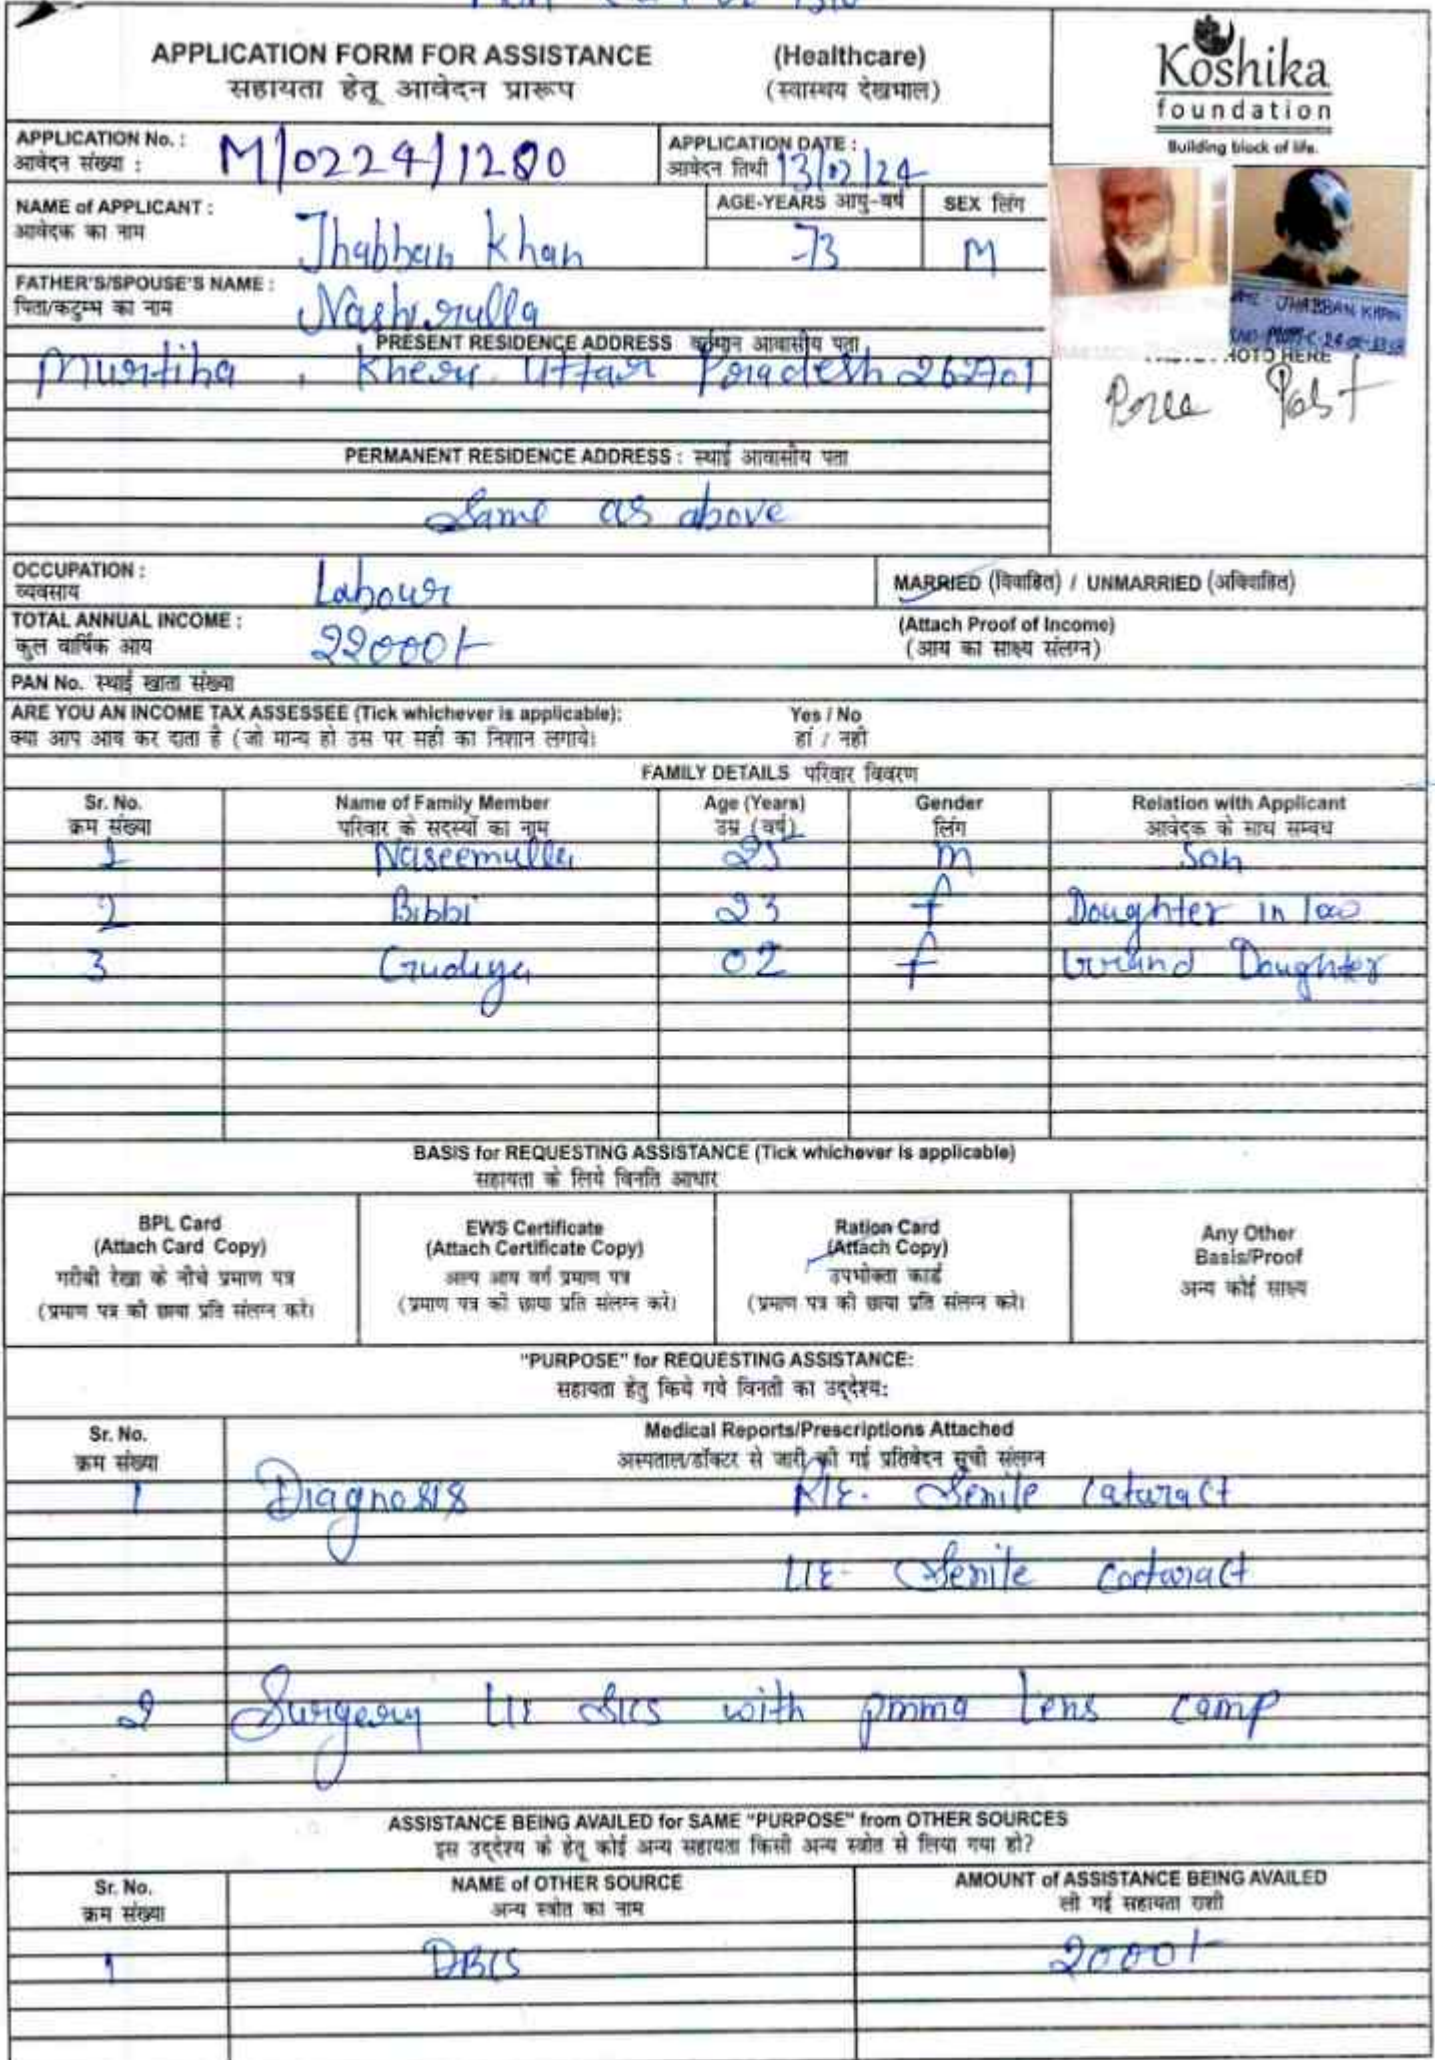 APPLICATION FORM FOR ASSISTANCE (Healthcare)
सहायता हेतू आवेदन प्रारूप (स्वास्थय देखभाल)
Koshika
foundation
Building block of life.
APPLICATION No. : M/0224/1280
आवेदन संख्या :
APPLICATION DATE : 13/02/24
आवेदन तिथी
NAME of APPLICANT : Jhabban Khan
आवेदक का नाम
AGE-YEARS आयु-वर्ष 73
SEX लिंग M
FATHER'S/SPOUSE'S NAME : Nashirulla
पिता/कटुम्भ का नाम
PRESENT RESIDENCE ADDRESS वर्तमान आवासीय पता
Murtiha , Kheri Uttar Pradesh 262701
JHABBAN KHAN
PHOTO HERE
Pree Post
PERMANENT RESIDENCE ADDRESS : स्थाई आवासीय पता
Same as above
OCCUPATION : Labour
व्यवसाय
MARRIED (विवाहित) / UNMARRIED (अविवाहित)
TOTAL ANNUAL INCOME : 22000/-
कुल वार्षिक आय
(Attach Proof of Income)
(आय का साक्ष्य संलग्न)
PAN No. स्थाई खाता संख्या
ARE YOU AN INCOME TAX ASSESSEE (Tick whichever is applicable): Yes / No
क्या आप आय कर दाता है (जो मान्य हो उस पर सही का निशान लगाये। हां / नही
FAMILY DETAILS परिवार विवरण
Sr. No. Name of Family Member Age (Years) Gender Relation with Applicant
क्रम संख्या परिवार के सदस्यों का नाम उम्र (वर्ष) लिंग आवेदक के साथ सम्बध
1 Naseemulla 25 M Son
2 Bibbi 23 f Doughter in law
3 Gudiya 02 f Grand Doughter
BASIS for REQUESTING ASSISTANCE (Tick whichever is applicable)
सहायता के लिये विनति आधार
BPL Card
(Attach Card Copy)
गरीबी रेखा के नीचे प्रमाण पत्र
(प्रमाण पत्र की छाया प्रति संलग्न करे।
EWS Certificate
(Attach Certificate Copy)
अल्प आय वर्ग प्रमाण पत्र
(प्रमाण पत्र की छाया प्रति संलग्न करे।
Ration Card
(Attach Copy)
उपभोक्ता कार्ड
(प्रमाण पत्र की छाया प्रति संलग्न करे।
Any Other
Basis/Proof
अन्य कोई साक्ष्य
"PURPOSE" for REQUESTING ASSISTANCE:
सहायता हेतु किये गये विनती का उद्देश्य:
Sr. No. Medical Reports/Prescriptions Attached
क्रम संख्या अस्पताल/डॉक्टर से जारी की गई प्रतिवेदन सूची संलग्न
1 Diagnosis R/E- Senile Cataract
L/E- Senile Cataract
2 Surgery L/E SICS with pmma lens camp
ASSISTANCE BEING AVAILED for SAME "PURPOSE" from OTHER SOURCES
इस उद्देश्य के हेतू कोई अन्य सहायता किसी अन्य स्त्रोत से लिया गया हो?
Sr. No. NAME of OTHER SOURCE AMOUNT of ASSISTANCE BEING AVAILED
क्रम संख्या अन्य स्त्रोत का नाम ली गई सहायता राशी
1 DBCS 2000/-